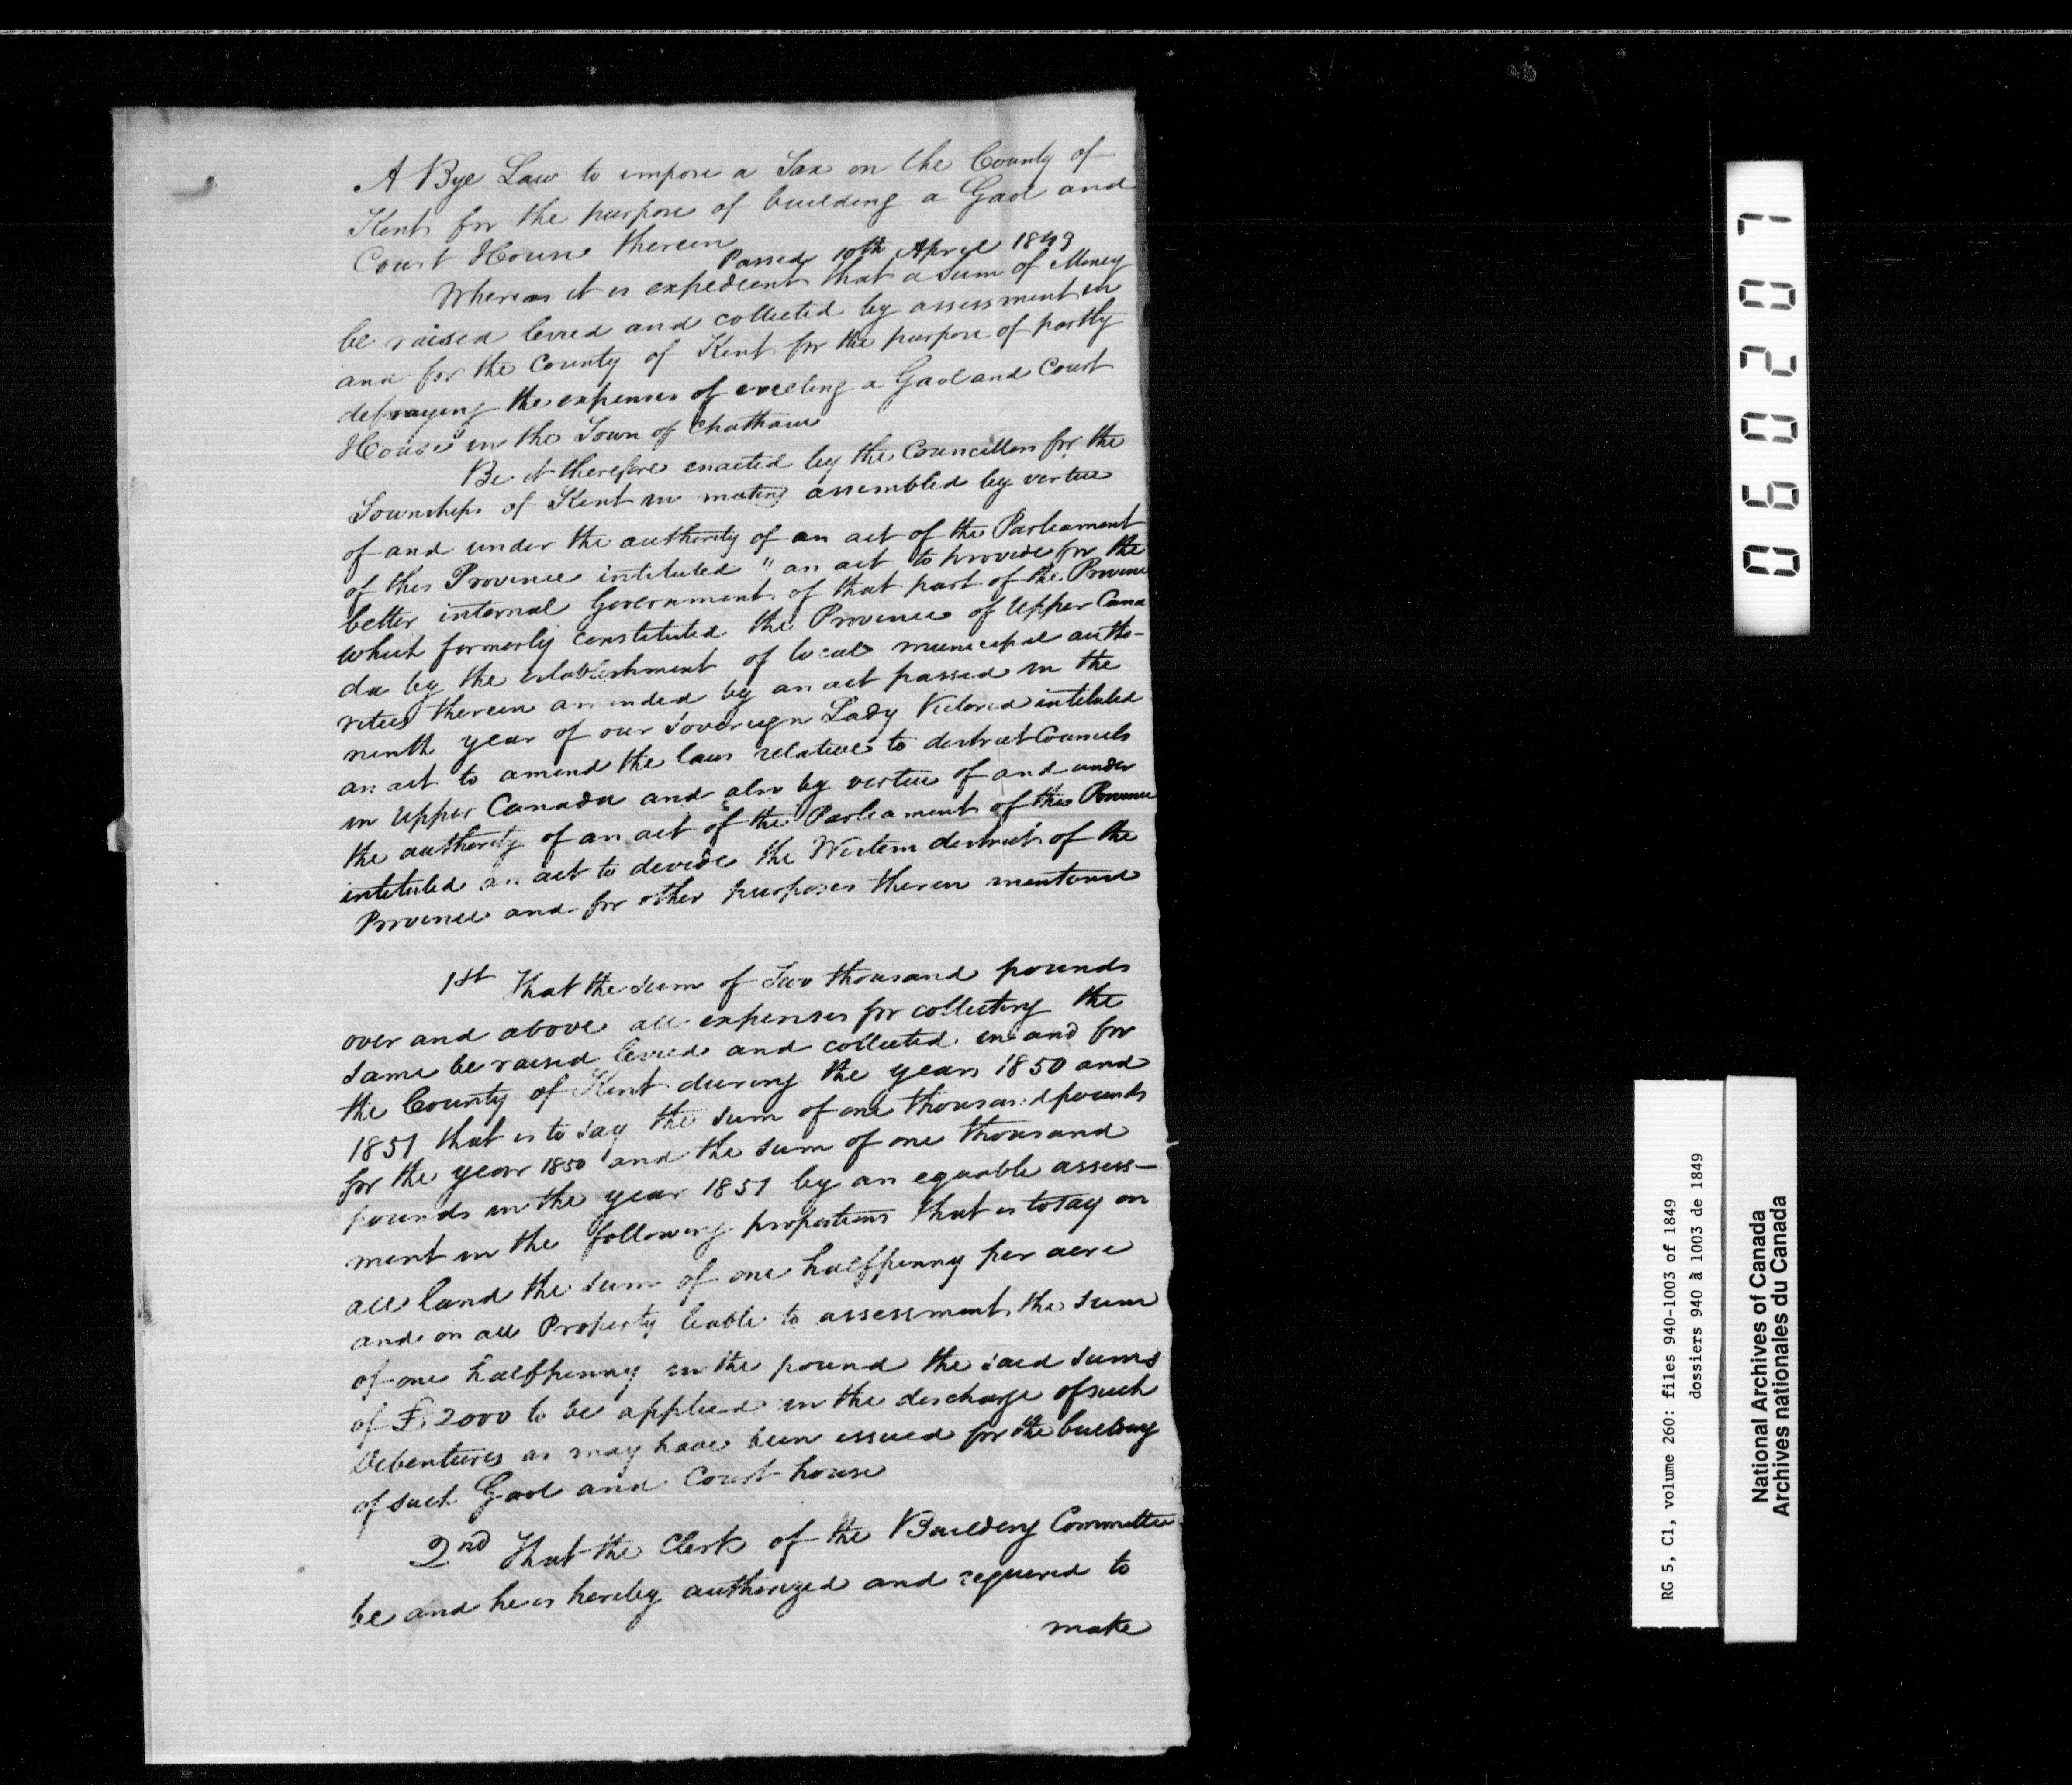 A Bye Law to impose a Tax on the County of
Kent for the purpose of building a Gaol and
Court House therein
Passed 10th April 1849
Whereas it is expedient that a Sum of Money
be raised levied and collected by assessment in
and for the County of Kent for the purpose of partly
defraying the expenses of erecting a Gaol and Court
House in the Town of Chatham
Be it therefore enacted by the Councillors for the
Townships of Kent in meeting assembled by vertue
of and under the authority of an act of the Parliament
of this Province intituled "an act to provide for the
better internal Government of that part of the Province
which formerly constituted the Province of Upper Cana
da by the establishment of local municipal autho-
rities therein amended by an act passed in the
ninth year of our Sovereign Lady Victoria intituled
an act to amend the laws relative to district Councils
in Upper Canada and also by vertue of and under
the authority of an act of the Parliament of this Province
intituled an act to devide the Western district of the
Province and for other purposes therein mentioned
1st That the Sum of Two thousand pounds
over and above all expenses for collecting the
Same be raised levied and collected in and for
the County of Kent during the years 1850 and
1851 that is to say the sum of one thousand pounds
for the year 1850 and the sum of one thousand
pounds in the year 1851 by an equable assess-
ment in the following proportions that is to say on
all land the sum of one halfpenny per acre
and on all Property liable to assessment the sum
of one halfpenny in the pound the said sums
of £2000 to be applied in the discharge of such
Debentures as may have been issued for the building
of such Gaol and Court house
2nd That the Clerk of the Building Committee
be and he is hereby authorized and required to
make
060207
RG 5, C1, volume 260: files 940-1003 of 1849
dossiers 940 à 1003 de 1849
National Archives of Canada
Archives nationales du Canada